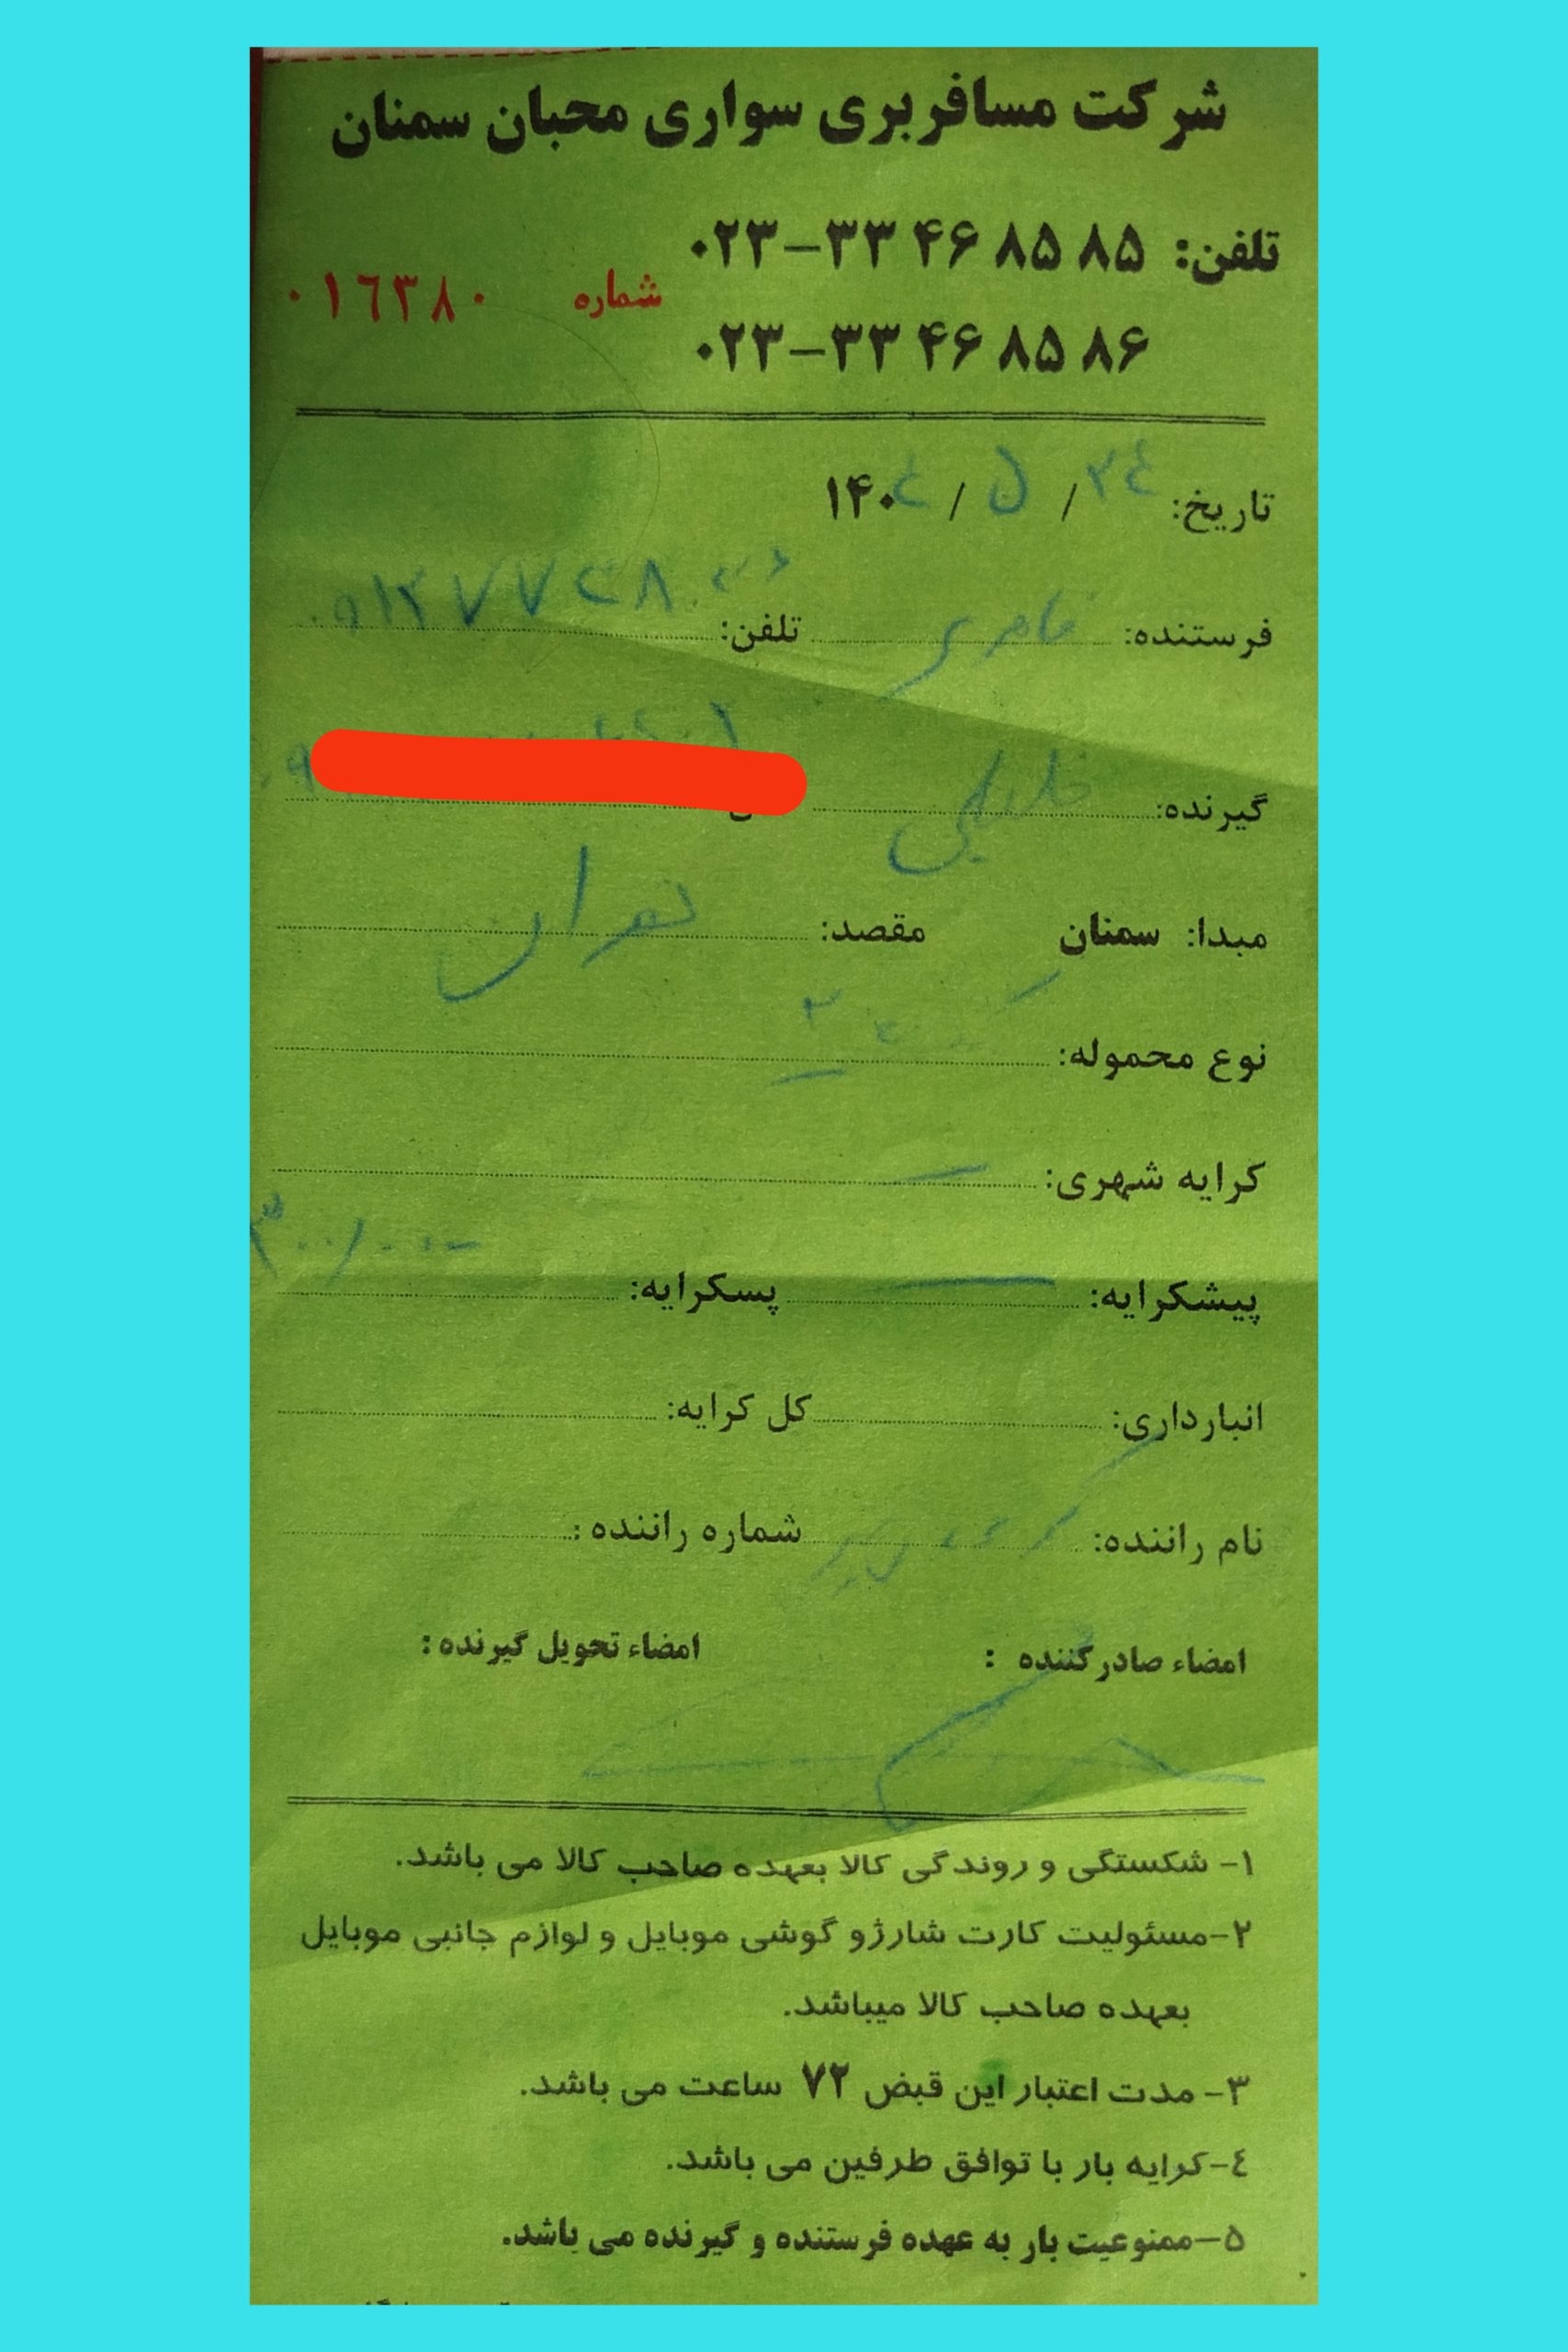 شرکت مسافربری سواری محبان سمنان
تلفن: ۰۲۳-۳۳ ۴۶ ۸۵ ۸۵
شماره ٠١٦٣٨٠
۰۲۳-۳۳ ۴۶ ۸۵ ۸۶
تاریخ: ۲٤ / ۵ / ۱۴۰٤
فرستنده: تلفن:
گیرنده: خلیلی
مبدا: سمنان مقصد: تهران
نوع محموله:
کرایه شهری:
پیشکرایه: پسکرایه: ۳۰۰/۰۰۰
انبارداری: کل کرایه:
نام راننده: شماره راننده:
امضاء صادرکننده : امضاء تحویل گیرنده :
۱- شکستگی و روندگی کالا بعهده صاحب کالا می باشد.
۲-مسئولیت کارت شارژو گوشی موبایل و لوازم جانبی موبایل
بعهده صاحب کالا میباشد.
۳- مدت اعتبار این قبض ۷۲ ساعت می باشد.
٤-کرایه بار با توافق طرفین می باشد.
۵-ممنوعیت بار به عهده فرستنده و گیرنده می باشد.